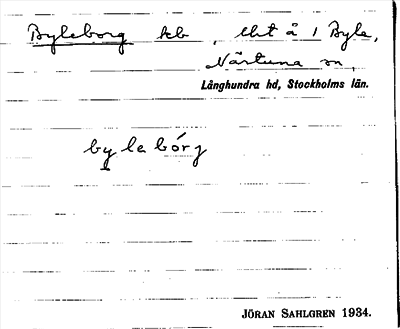 Byleborg lb , lht å 1 Byle,
Närtuna sn,
Långhundra hd, Stockholms län.
byleborg
JÖRAN SAHLGREN 1934.